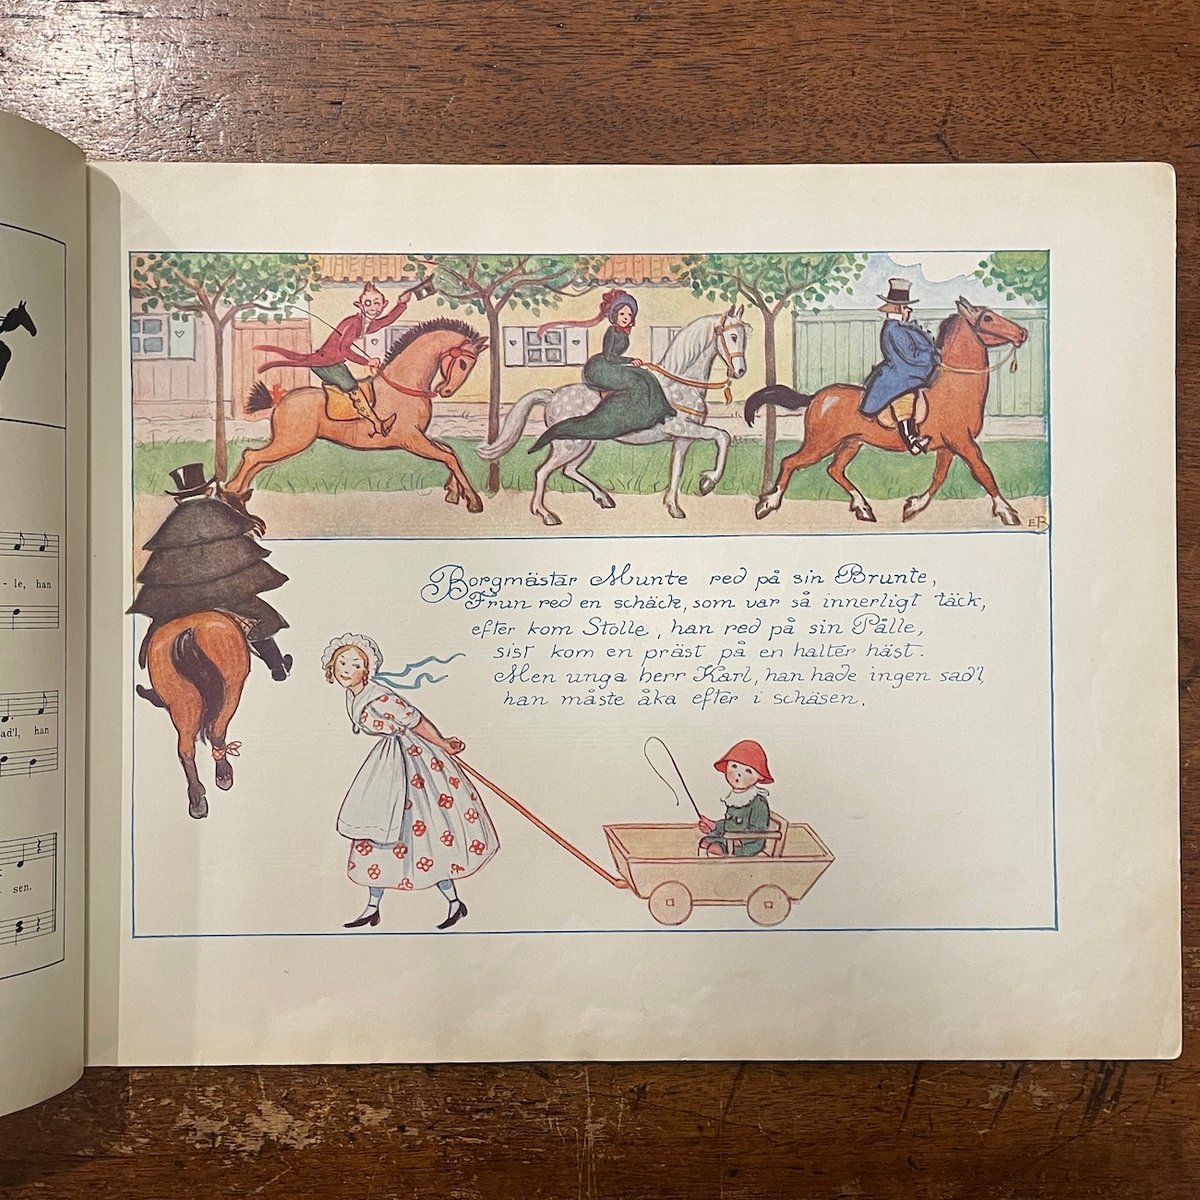 - le, han
ad'l, han
sen.
EB
Borgmästar Munte red på sin Brunte,
Frun red en schäck, som var så innerligt täck,
efter kom Stolle, han red på sin Pålle,
sist kom en präst på en halter häst.
Men unga herr Karl, han hade ingen sad'l,
han måste åka efter i schäsen.